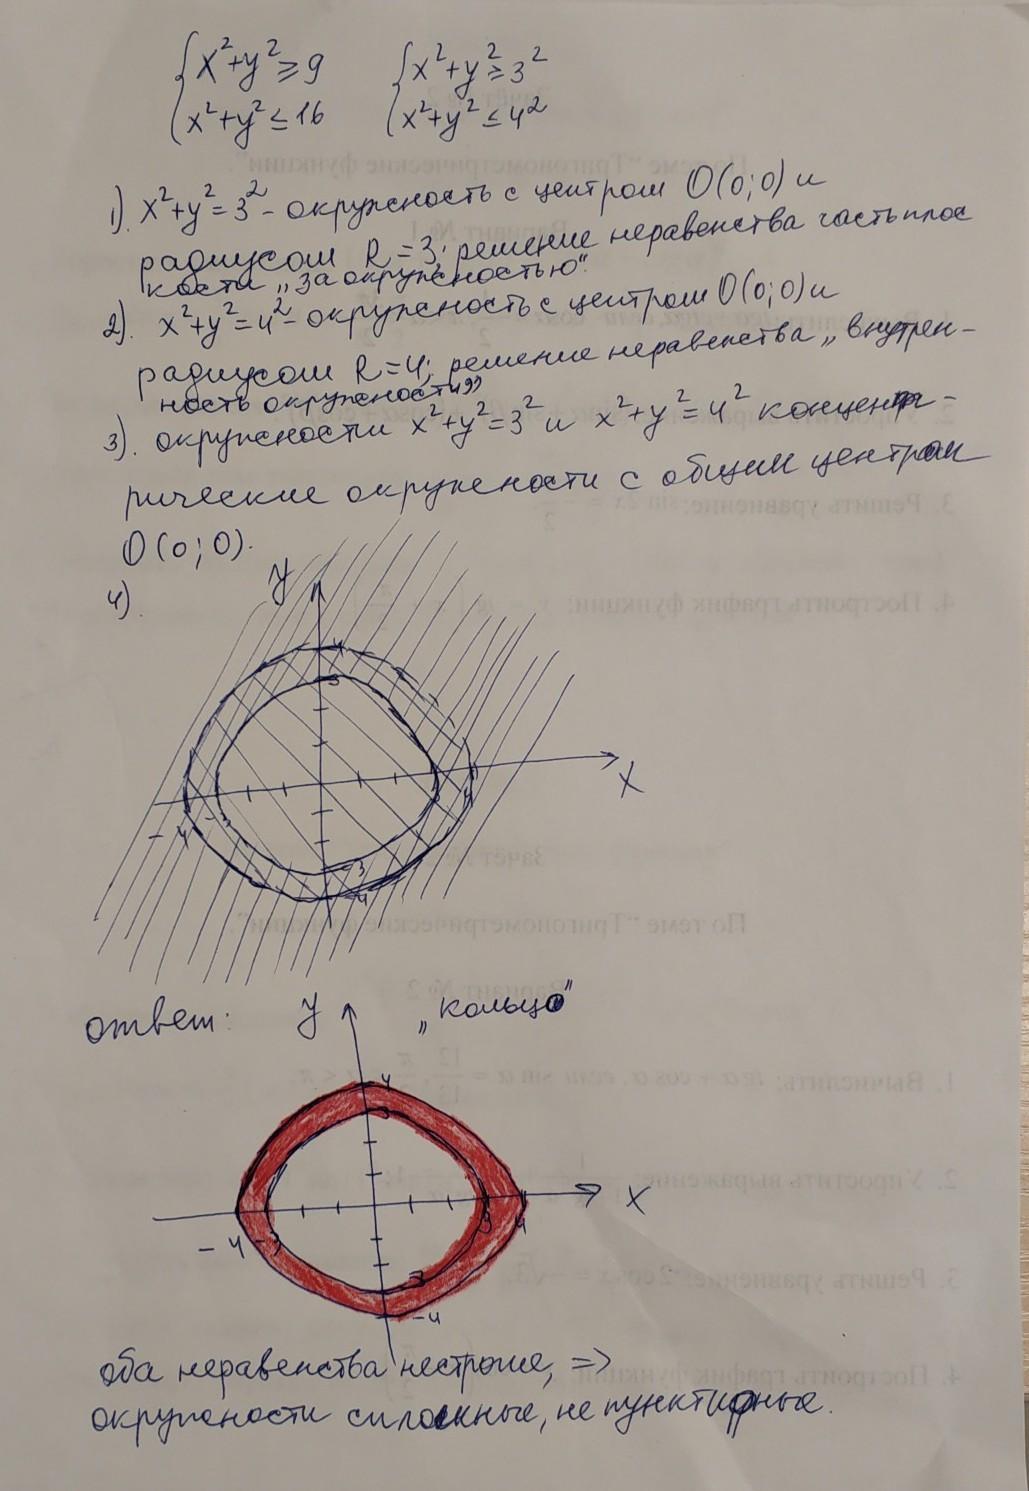 {x²+y² ≥ 9 {x²+y² ≥ 3²
{x²+y² ≤ 16 {x²+y² ≤ 4²
1). x²+y² = 3² - окружность с центром O(0;0) и
радиусом R = 3; решение неравенства часть плос
кости „за окружностью“.
2). x²+y² = 4² - окружность с центром O(0;0) и
радиусом R = 4; решение неравенства „внутрен-
ность окружности”
3). окружности x²+y² = 3² и x²+y² = 4² концент-
рические окружности с общим центром
O(0;0).
4).
y
4
3
x
-4 -3
-3
-4
ответ: y „кольцо”
4
3
x
-4 -3 3 4
-3
-4
оба неравенства нестрогие, =>
окружности сплошные, не пунктирные.
По теме "Тригонометрические функции".
3. Решить уравнение: sin 2x =
4. Построить график функции: y = tg
Зачёт №
По теме "Тригонометрические функции".
Вариант № 2
1. Вычислить: tg α + cos α, если sin α = 12/13
2. Упростить выражение:
3. Решить уравнение: 2cos x = -√3.
4. Построить график функции: